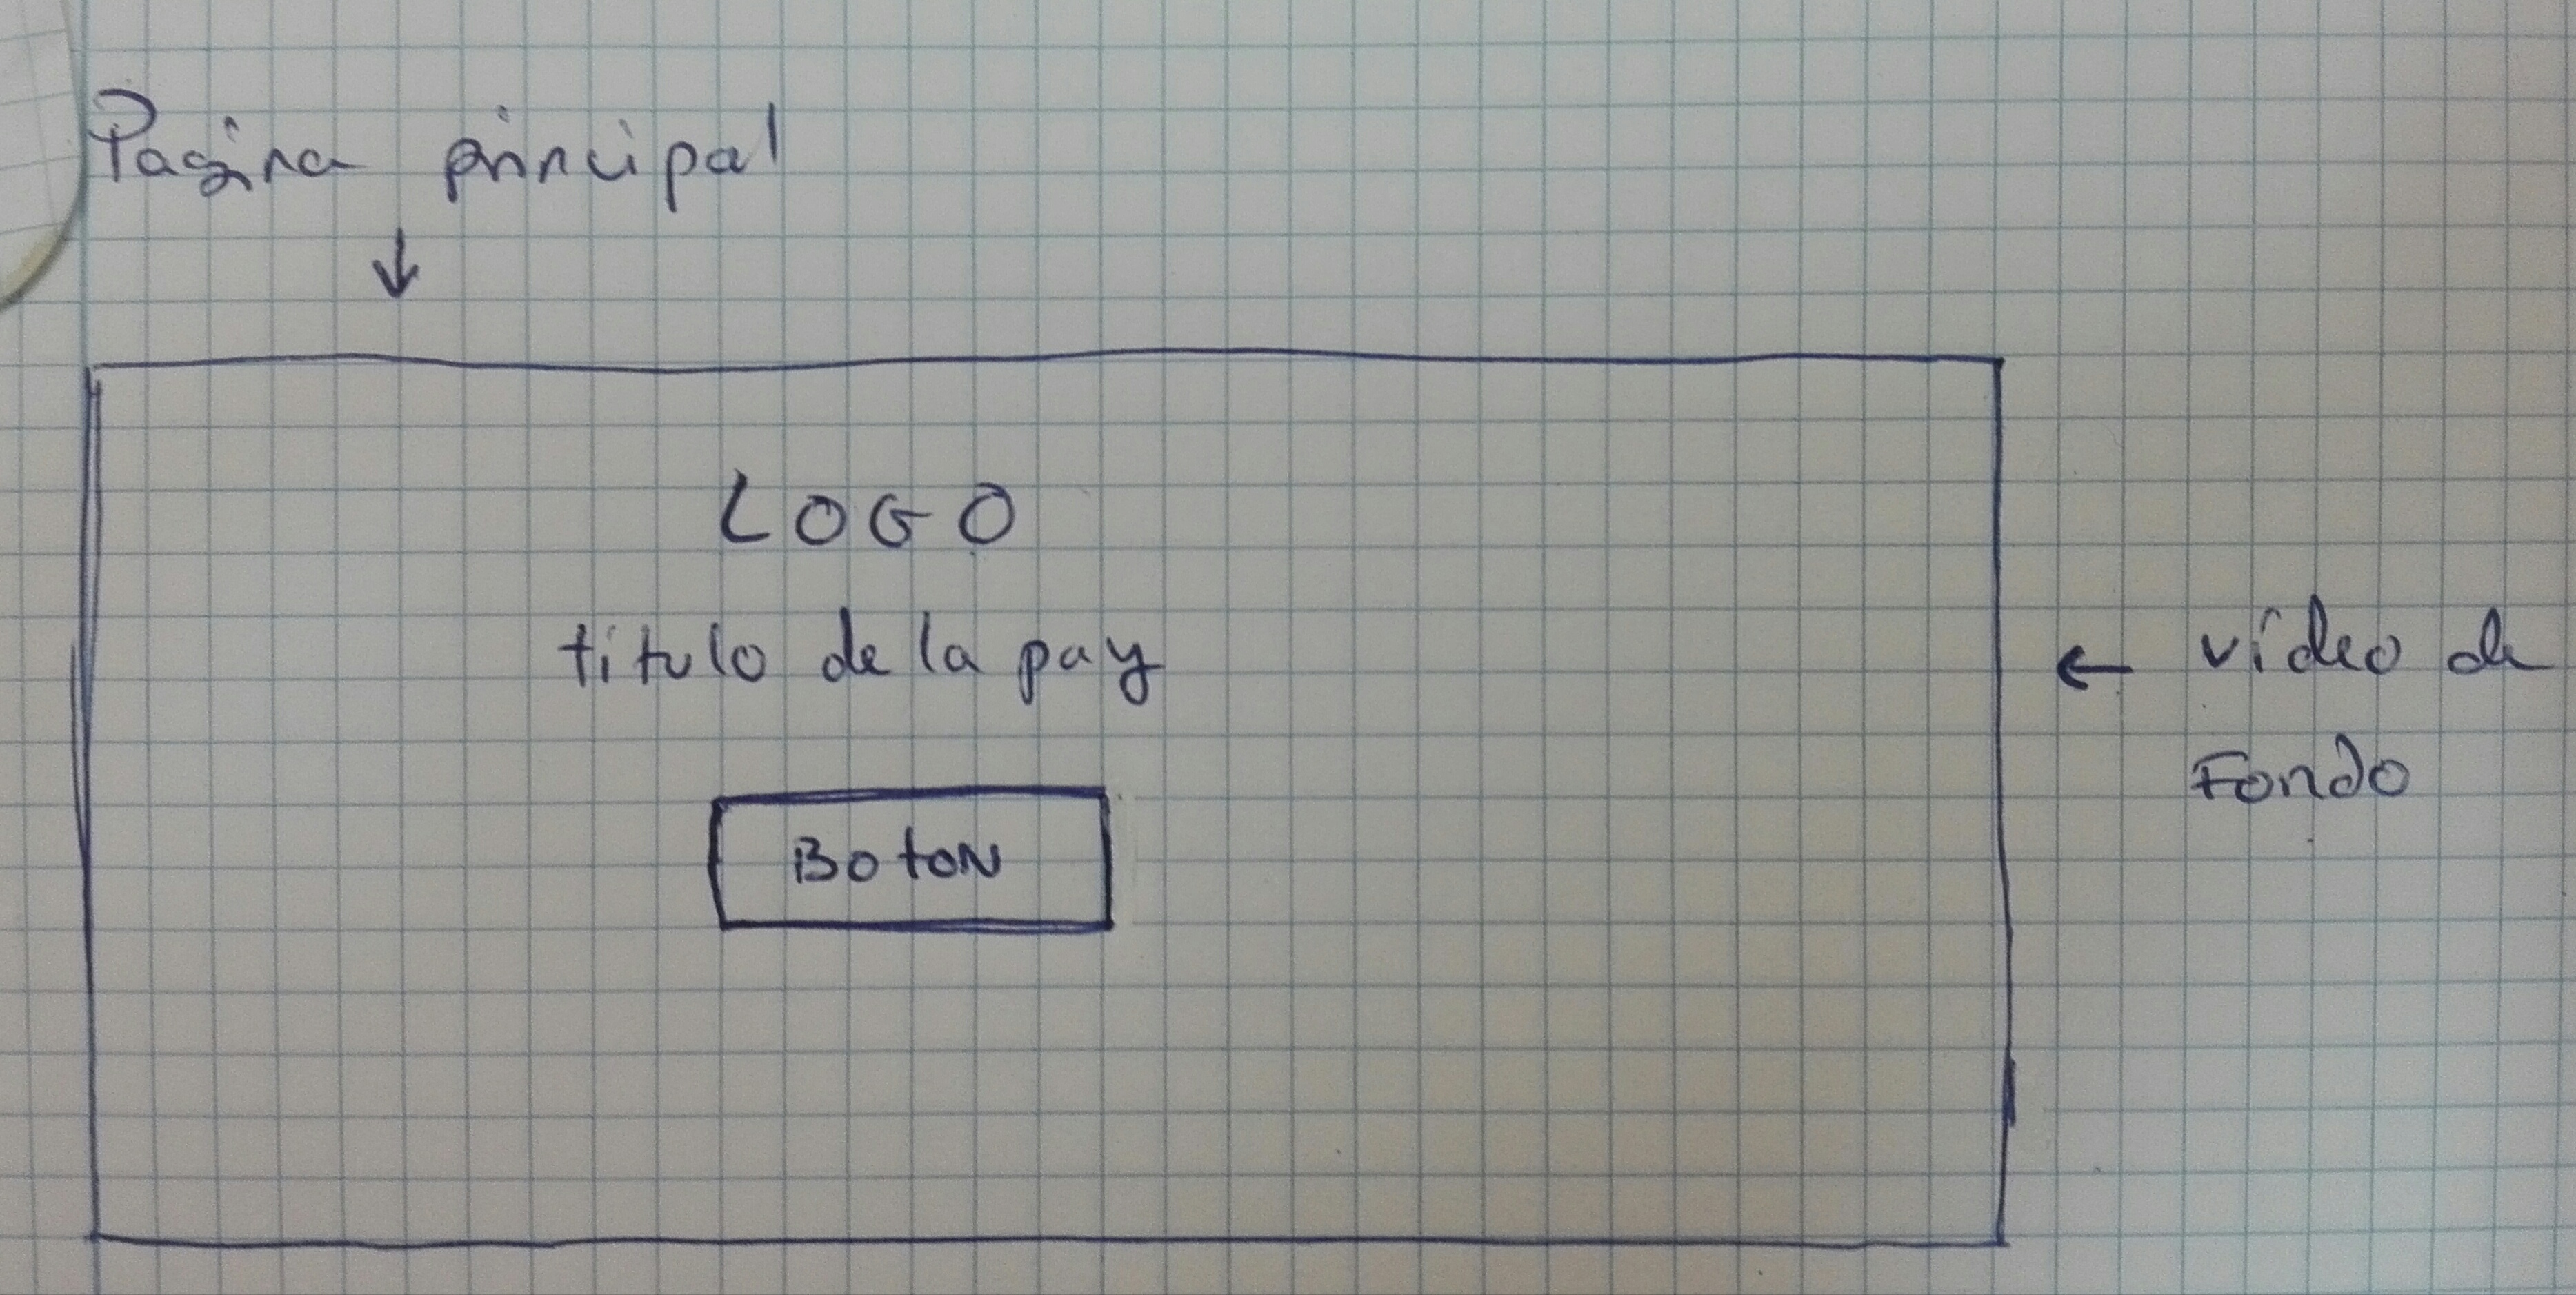 Pagina principal
LOGO
titulo de la pag
Boton
← vídeo de
Fondo